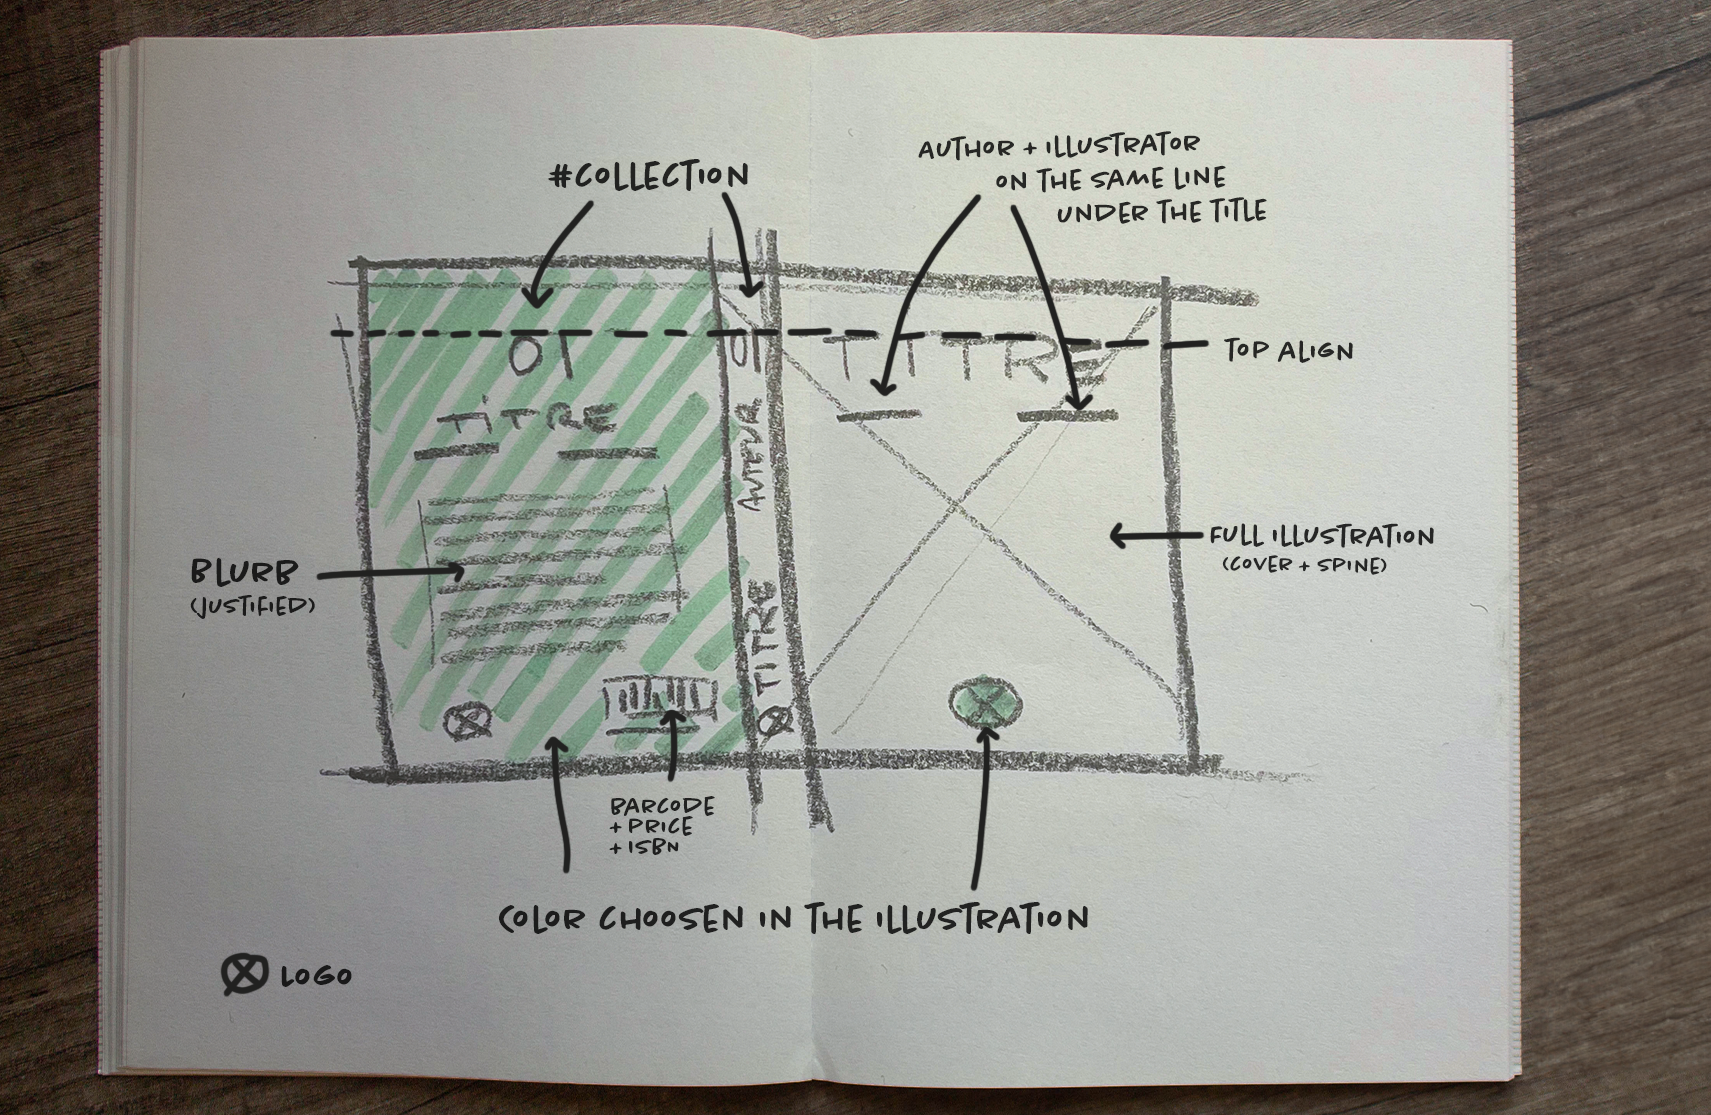 #COLLECTION
AUTHOR + ILLUSTRATOR
ON THE SAME LINE
UNDER THE TITLE
01
01
TITRE
TOP ALIGN
TITRE
AUTEUR
TITRE
BLURB
(JUSTIFIED)
FULL ILLUSTRATION
(COVER + SPINE)
BARCODE
+ PRICE
+ ISBN
COLOR CHOOSEN IN THE ILLUSTRATION
LOGO